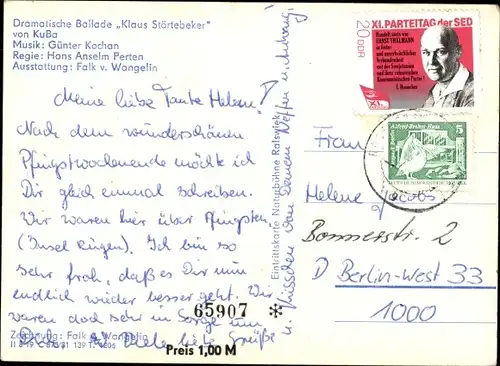 Dramatische Ballade „Klaus Störtebeker"
von KuBa
Musik: Günter Kochan
Regie: Hans Anselm Perten
Ausstattung: Falk v. Wangelin
Meine liebe Tante Helene!
Nach dem wunderschönen
Pfingstwochenende möchte ich
Dir gleich einmal schreiben.
Wir waren hier über Pfingsten
(Insel Rügen). Ich bin so
sehr froh, daß es Dir nun
endlich wieder besser geht. Wir
waren doch sehr in Sorge um
Dich. Viele liebe Grüße
u. Küsschen von Deinem Neffen
65907 *
Zeichnung: Falk v. Wangelin
Preis 1,00 M
Eintrittskarte Naturbühne Ralswiek
XI. PARTEITAG der SED
20 DDR
Handelt stets wie
ERNST THÄLMANN
in fester
und unverbrüchlicher
Verbundenheit
mit der Sowjetunion
und ihrer ruhmreichen
Kommunistischen Partei!
E. Honecker
XI.
5
Frau
Helene Jacobs
Bonnerstr. 2
D Berlin-West 33
1000